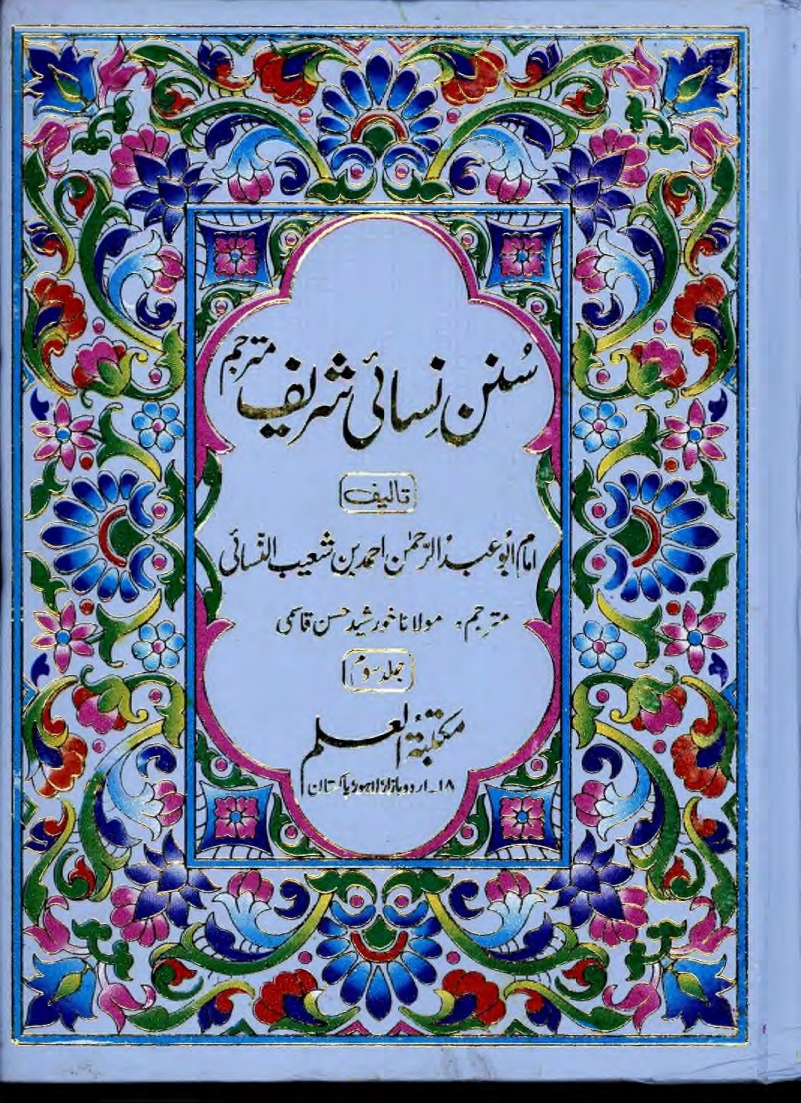 سُنن نِسائی شریف مترجم
تالیف
امام ابُو عبدُ الرّحمٰن احمد بن شعیب النّسائی
مترجم، مولانا خورشید حسن قاسمی
جلد سوم
مکتبۃُ العلم
۱۸۔ اردو بازار لاہور پاکستان